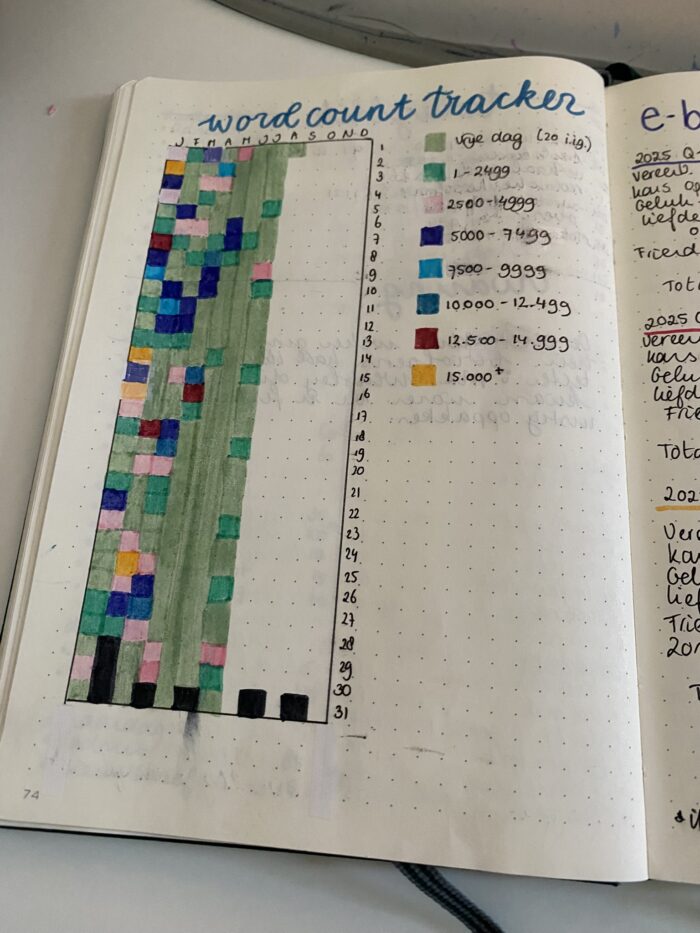 word count tracker
J F M A M J J A S O N D
1
2
3
4
5
6
7
8
9
10
11
12
13
14
15
16
17
18
19
20
21
22
23
24
25
26
27
28
29
30
31
vrije dag (20 i.ig.)
1 - 2499
2500 - 4999
5000 - 7499
7500 - 9999
10.000 - 12.499
12.500 - 14.999
15.000+
74
e-b
2025 Q-
Vereeu.
kans op
Geluk
liefde
Friend
Tot
2025 Q
Vereeu
kans
Gelu
liefd
Frie
Tota
202
Vere
Kan
Gel
lief
Frie